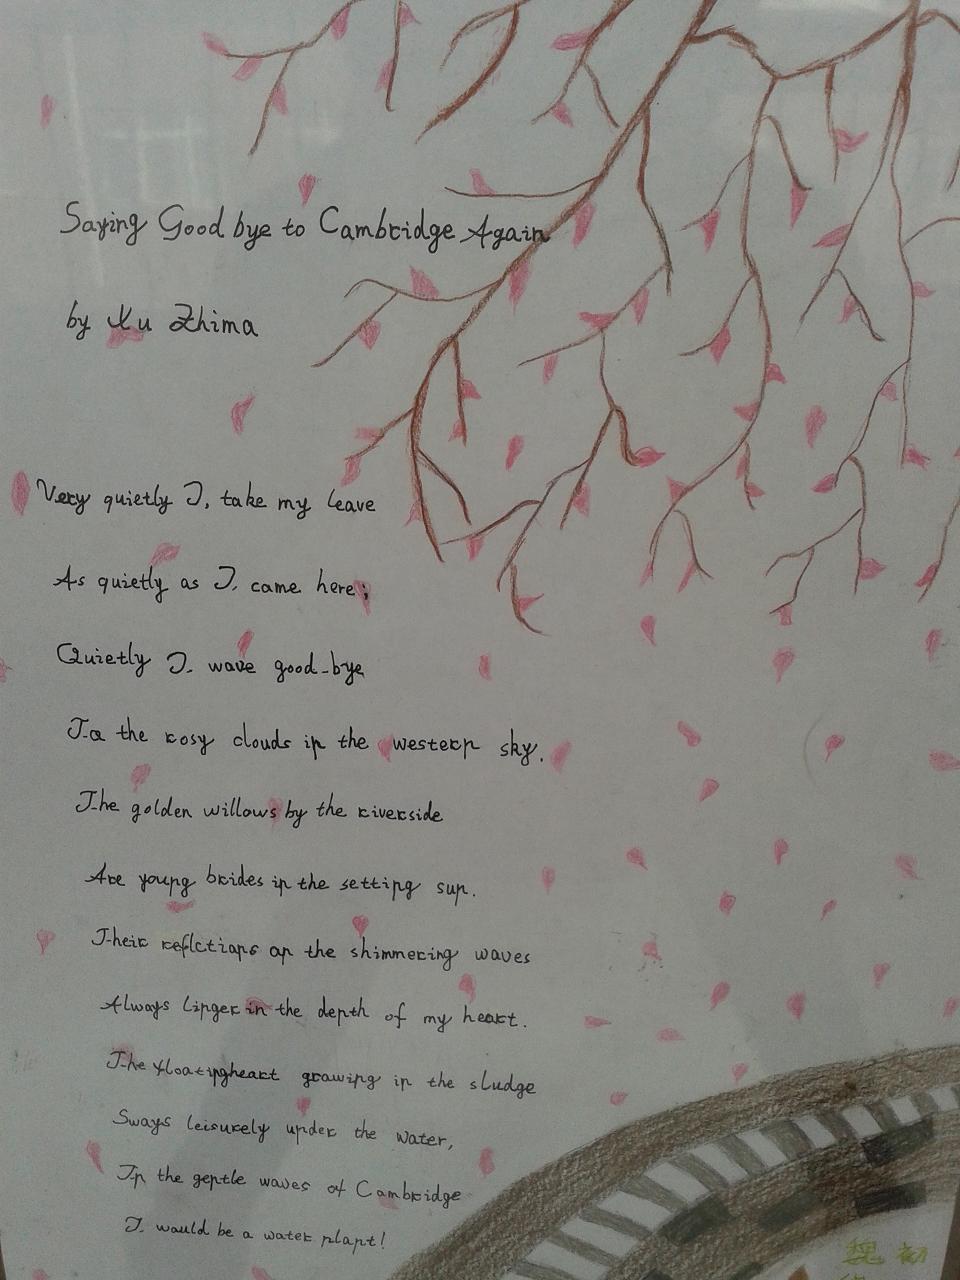 Saying Good bye to Cambridge Again
by Xu Zhima
Very quietly I, take my leave
As quietly as I, came here;
Quietly I. wave good-bye
To the rosy clouds in the western sky.
The golden willows by the riverside
Are young brides in the setting sun.
Their reflctions on the shimmering waves
Always linger in the depth of my heart.
The floatingheart growing in the sludge
Sways leisurely under the water,
In the gentle waves of Cambridge
I would be a water plant!
魏初